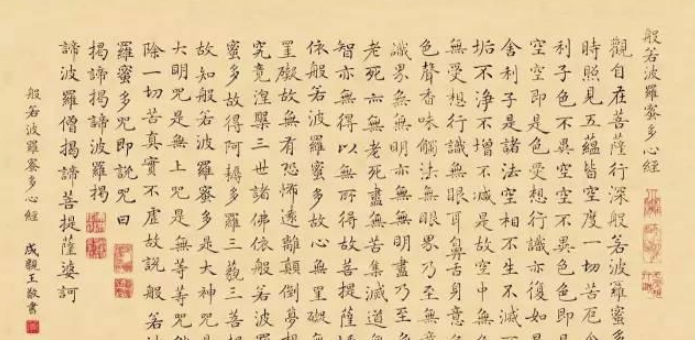 般若波羅蜜多心經
觀自在菩薩行深般若波羅蜜多
時照見五蘊皆空度一切苦厄舍
利子色不異空空不異色色即是
空空即是色受想行識亦復如是
舍利子是諸法空相不生不滅不
垢不淨不增不減是故空中無色
無受想行識無眼耳鼻舌身意無
色聲香味觸法無眼界乃至無意
識界無無明亦無無明盡乃至無
老死亦無老死盡無苦集滅道無
智亦無得以無所得故菩提薩埵
依般若波羅蜜多故心無罣礙無
罣礙故無有恐怖遠離顛倒夢想
究竟涅槃三世諸佛依般若波羅
蜜多故得阿耨多羅三藐三菩提
故知般若波羅蜜多是大神咒是
大明咒是無上咒是無等等咒能
除一切苦真實不虛故說般若
羅蜜多咒即說咒曰
揭諦揭諦波羅揭
諦波羅僧揭諦菩提薩婆訶
般若波羅蜜多心經
成親王敬書